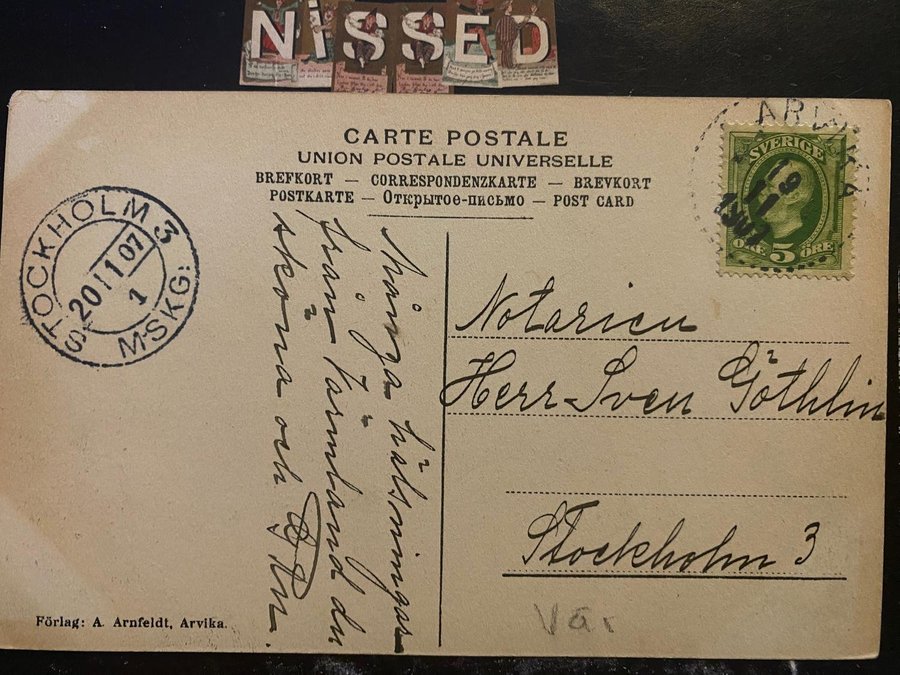 NISSED
CARTE POSTALE
UNION POSTALE UNIVERSELLE
BREFKORT — CORRESPONDENZKARTE — BREVKORT
POSTKARTE — Открытое-письмо — POST CARD
ARVIKA
19
11
1907
SVERIGE
ÖRE 5 ÖRE
STOCKHOLM 3
20 1 07
1
M·SKG:
Många hälsningar
från Värmland du
sköna och
Notarien
Herr Sven Göthlin
Stockholm 3
Vär
Förlag: A. Arnfeldt, Arvika.